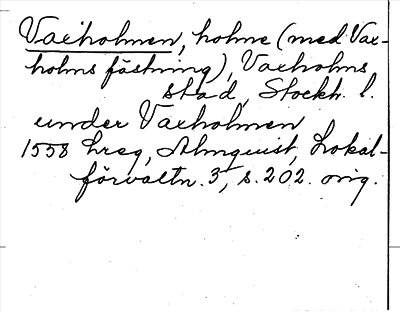 Vaxholmen, holme (med Vax-
holms fästning), Vaxholms
stad, Stockh. l.
under Vaxholmen
1558 hreg, Almquist, Lokal-
förvaltn. 3, s. 202. orig.